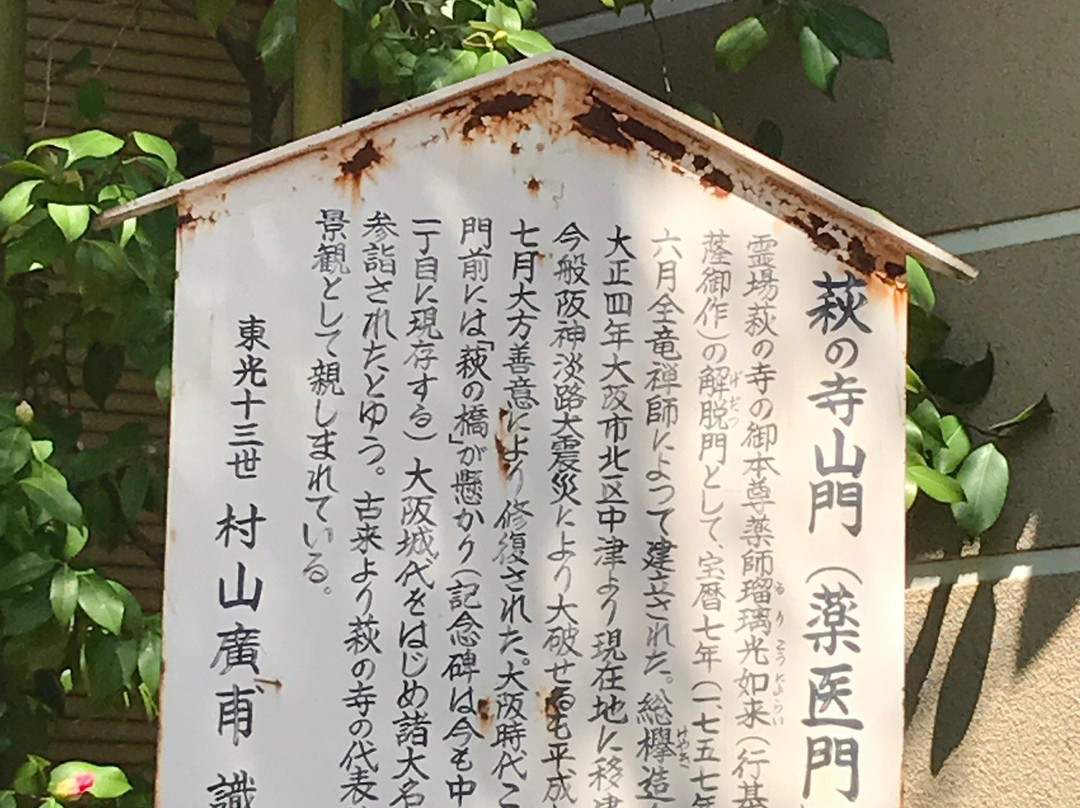 萩の寺山門（薬医門
霊場萩の寺の御本尊薬師瑠璃光如来（行基
るりこうにょらい
薩御作）の解脱門として、宝暦七年（一、七五七年
げだつ
六月全竜禅師によって建立された。総欅造
けやき
大正四年大阪市北区中津より現在地に移
今般阪神淡路大震災により大破せるも平成
七月大方善意により修復された。大阪時代こ
門前には「萩の橋」が懸かり（記念碑は今も中
一丁目に現存する）大阪城代をはじめ諸大名
参詣されたとゆう。古来より萩の寺の代表
景観として親しまれている。
東光十三世 村山廣甫 識